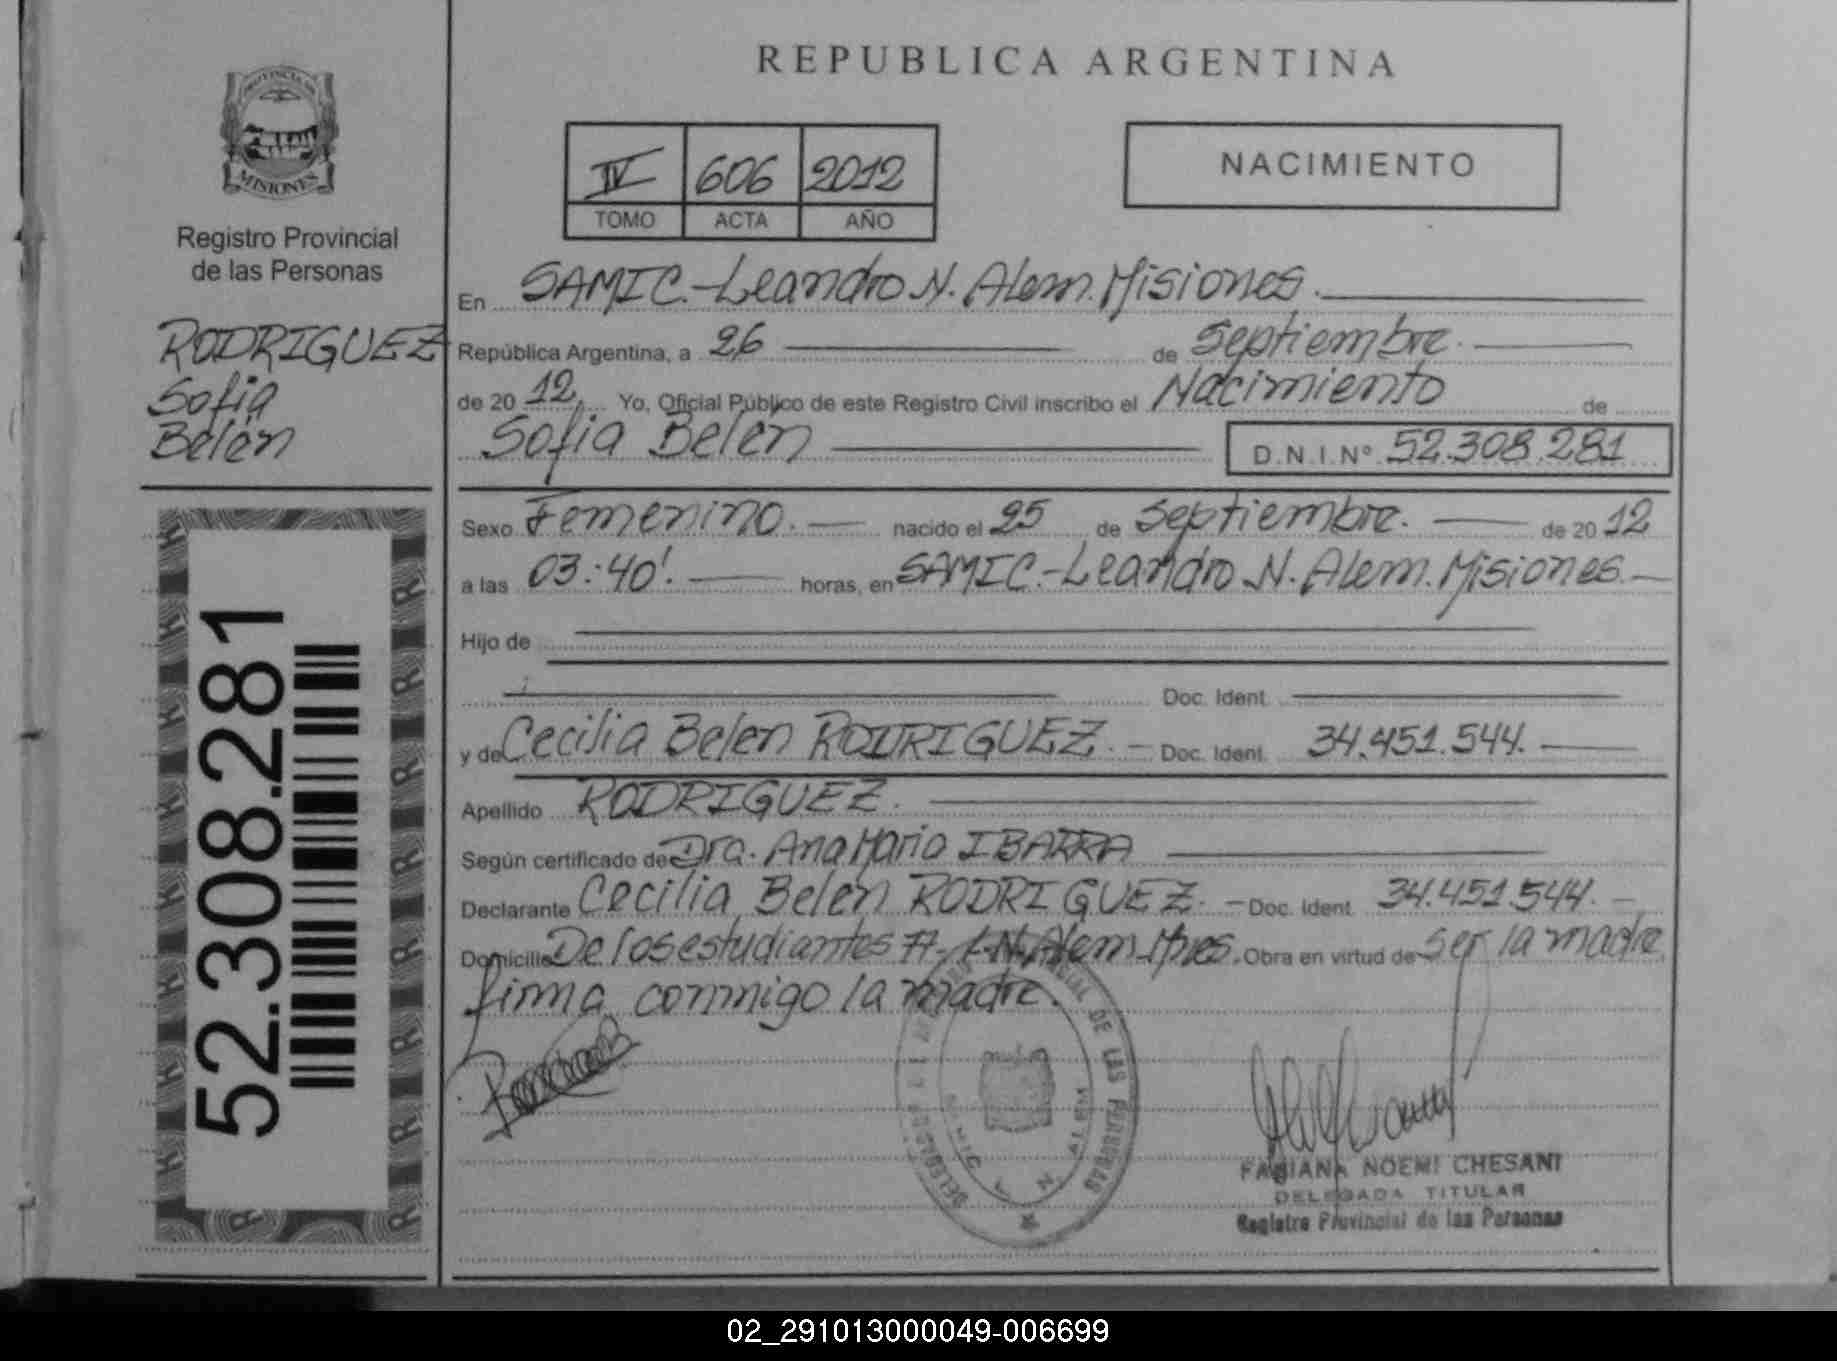 REPUBLICA ARGENTINA
PROVINCIA DE
MISIONES
Registro Provincial
de las Personas
RODRIGUEZ
Sofia
Belén
52.308.281
IV 606 2012
TOMO ACTA AÑO
NACIMIENTO
En SAMIC.-Leandro N. Alem. Misiones.
República Argentina, a 26 de Septiembre.
de 2012. Yo, Oficial Público de este Registro Civil inscribo el Nacimiento de
Sofia Belén D.N.I.Nº 52.308.281
Sexo Femenino. nacido el 25 de Septiembre. de 2012
a las 03:40'. horas, en SAMIC.-Leandro N. Alem. Misiones.
Hijo de
Doc. Ident.
y de Cecilia Belen RODRIGUEZ. Doc. Ident. 34.451.544.
Apellido RODRIGUEZ.
Según certificado de Dra. Ana Maria IBARRA
Declarante Cecilia Belen RODRIGUEZ. Doc. Ident. 34.451.544.
Domicilio De los estudiantes L.N. Alem. Mnes. Obra en virtud de Ser la madre
firma conmigo la madre.
DE LAS PERSONAS
FABIANA NOEMI CHESANI
DELEGADA TITULAR
Registro Provincial de las Personas
02_291013000049-006699